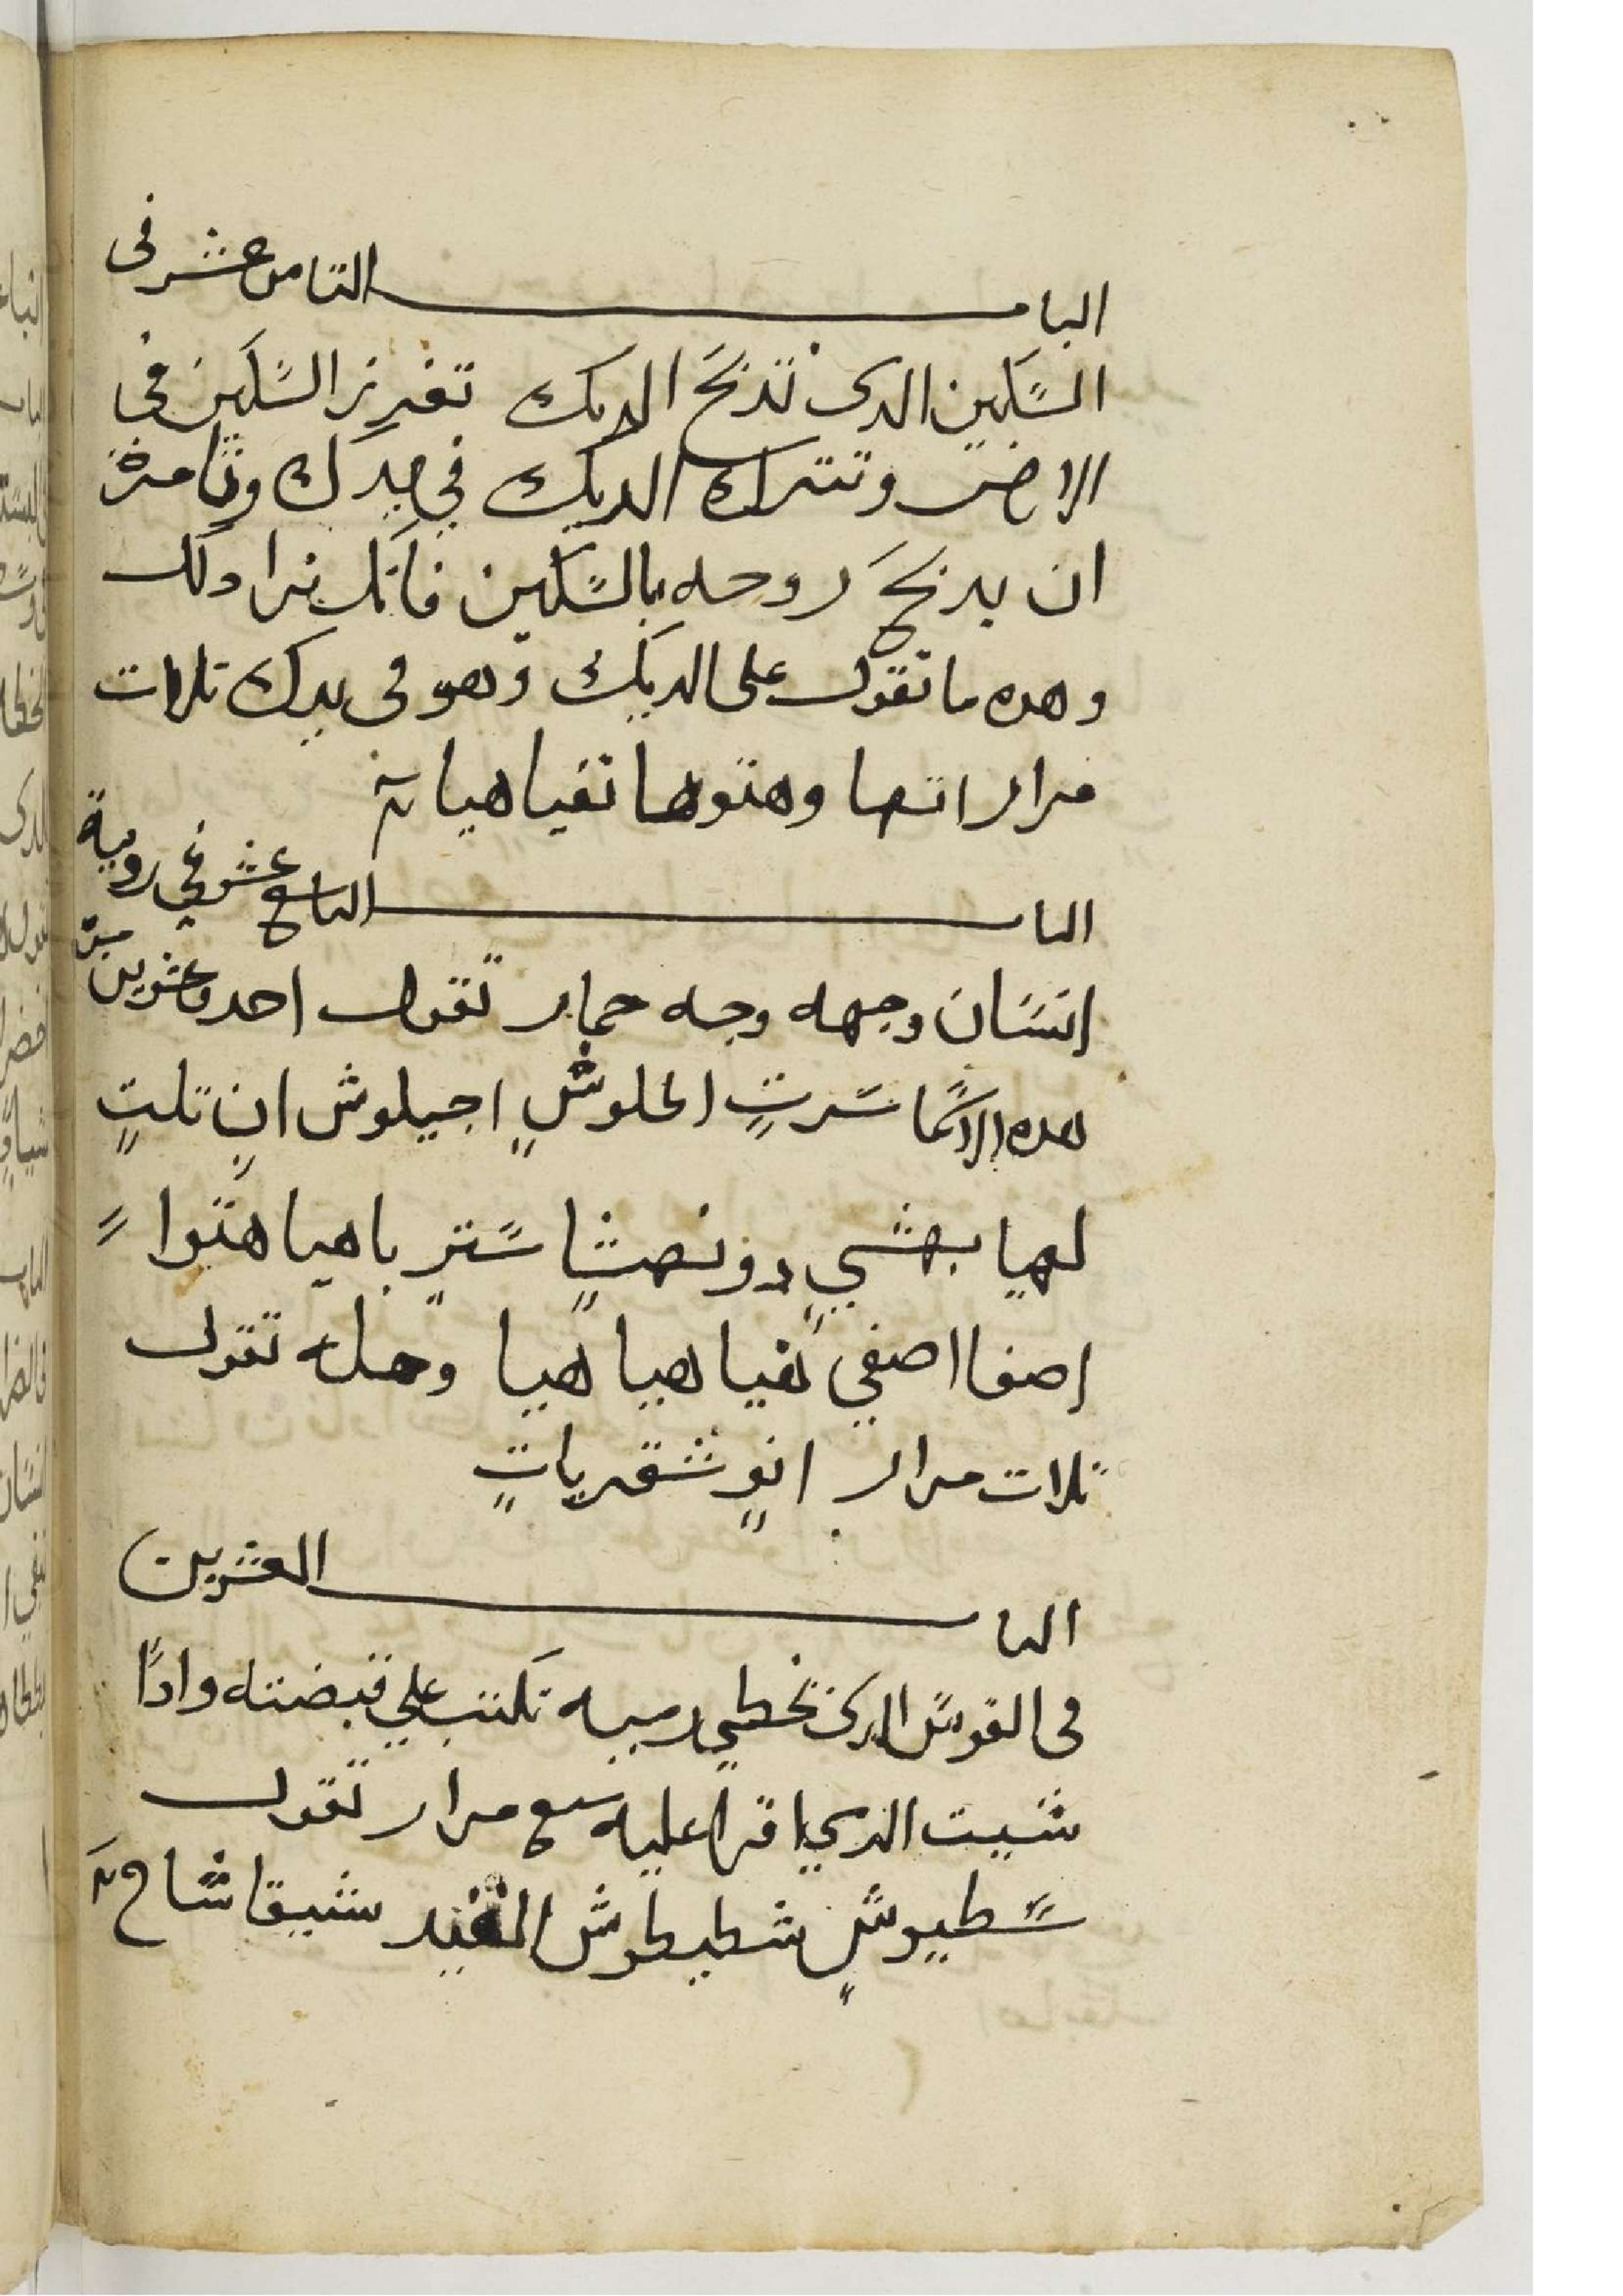 الباب التامن عشر في
السكين الدى تدبح الديك تغرز السكين في
الارض وتترك الديك في يدك وتامره
ان يدبح روحه بالسكين فانك ترا دلك
وهده ما تقول على الديك وهو في يدك تلات
مرار اتها وهتوها تفيا هيا
الباب التاسع عشر في روية
انسان وجهه وجه حمار تقول احد وعشرين مرة
هده الاسما سرت الحلوش اجيلوش ان تلت
لهيا بهشي دونصثا ستر باهيا هتوا
اصفا اصفي تفيا هيا هيا وحله تقول
تلات مرار انو شقريات
الباب العشرين
في القوس الدى تخطي رميه تكتب على قبضته وادا
شيت الدي اقرا عليه سبع مرار تقول
سطيوش شطيطوش شيقا شاح